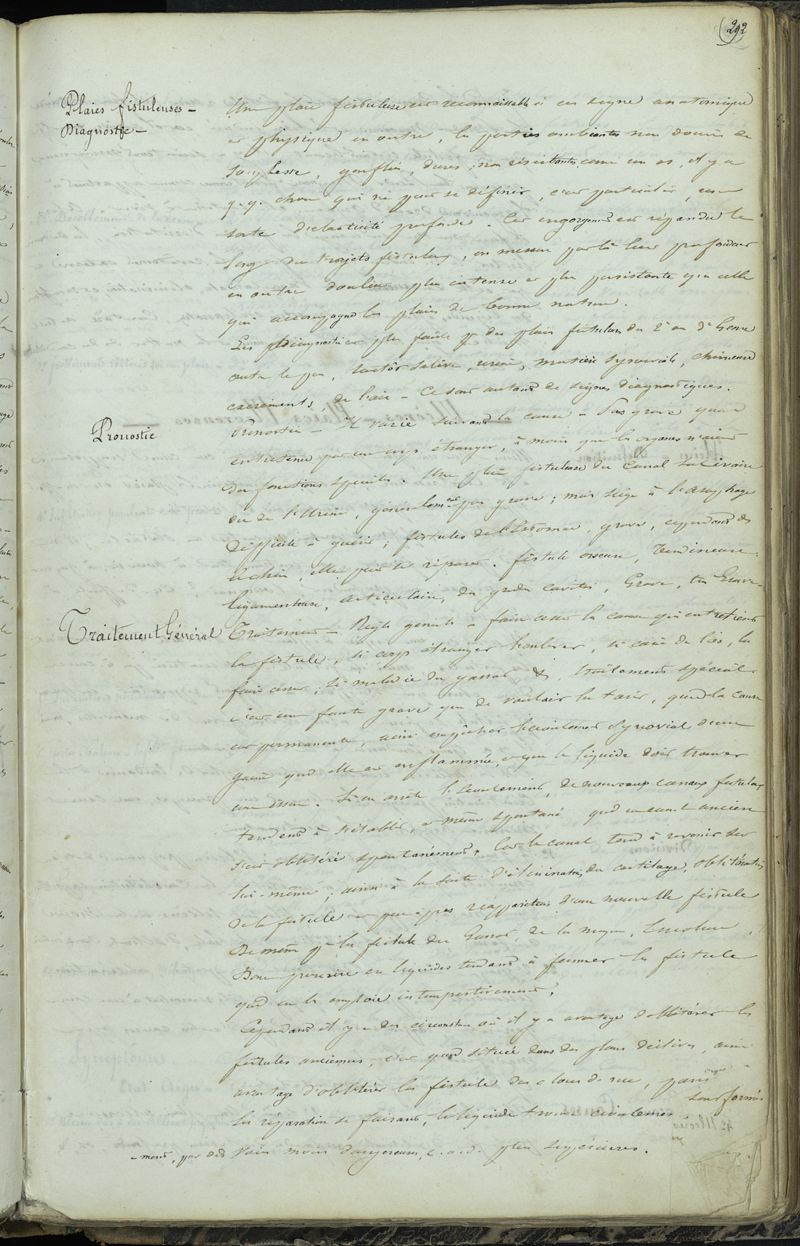 292
Plaies fistuleuses –
Diagnostic –
Une plaie fistuleuse est reconnaissable à ces signe anatomique
et physique en outre, les parties ambiantes non douées de
souplesse, gonflées, dures, non résistantes comme un os, il y a
q.q. chose qui ne peut se définir, c'est particulier, une
sorte d'élasticité profonde. Cet engorgement est répandu le
long des trajets fistuleux, on mesure par là leur profondeur
en outre douleur plus intense et plus persistante que celle
qui accompagne les plaies de bonne nature.
Les plus facile des plaies fistuleuses du 2e ou 3e Genre
outre le pus, tantôt salive, urine, matière synoviale,
excréments, de l'air – Ce sont autant de signes diagnostiques.
Pronostic
Pronostic – Il varie suivant la cause – Pas grave quand
entretenue par un corps étranger, à moins que les organes n'aient
des fonctions spéciales. Une plaie fistuleuse du Canal salivaire
ou de l'Urine, généralement pas grave; mais siège à l'œsophage
difficile à guérir; fistules de l'Estomac, grave, cependant
le chien, elle peut se réparer. fistule osseuse, Tendineuse
ligamenteuse, articulaire, des grandes cavités, Grave, très Grave –
Traitement Général
Traitement – Règle générale – faire cesser la cause qui entretient
la fistule, si corps étranger l'enlever, si carie de l'os, la
faire cesser, si maladie du garrot &, traitement spécial
c'est une faute grave que de vouloir les tarir, quand la cause
est permanente, ainsi empêcher l'écoulement synovial d'une
gaine quand elle est enflammée, et que le liquide doit trouver
une issue. Si on arrête l'écoulement, de nouveaux canaux fistuleux
tendent à s'établir, et même spontané quand un canal ancien
s'est oblitéré spontanément, Car le canal tend à revenir sur
lui-même; ainsi à la suite d'élimination du cartilage, oblitération
de la fistule – peu après réapparition d'une nouvelle fistule
De même que la fistule du Garrot, de la nuque, Encolure,
Donc proscrire les liquides tendant à fermer la fistule
quand on les emploie intempestivement.
Cependant il y a des circonstances où il y a avantage d'oblitérer les
fistules anciennes, c'est quand située dans des plans déclives, ainsi
avantage d'oblitérer les fistule des clous de rue,
la réparation se faisant, le liquide trouve écoule-
-ment, par des voies moins dangereuses, c.a.d. plus supérieures.
sont formés